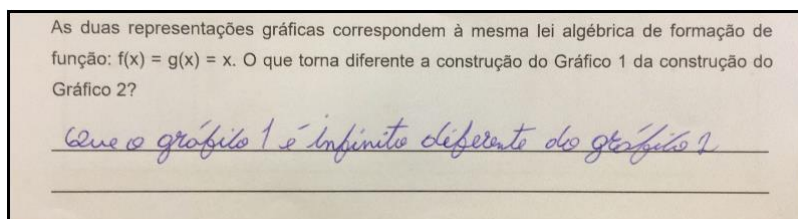 As duas representações gráficas correspondem à mesma lei algébrica de formação de
função: f(x) = g(x) = x. O que torna diferente a construção do Gráfico 1 da construção do
Gráfico 2?
Que o gráfico 1 é infinito diferente do gráfico 2